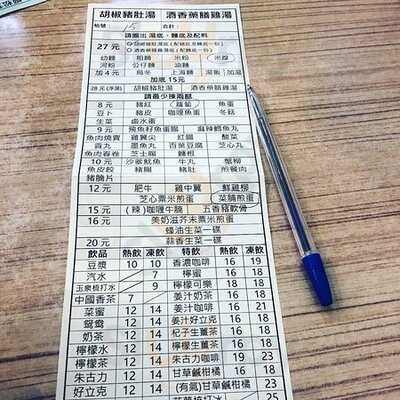 胡椒豬肚湯 酒香藥膳雞湯
檯號: 15 合計:
請圈出湯底、麵底及配料
27 元
胡椒豬肚湯底 (配豬肚及麵底一份)
酒香藥膳雞湯底
幼麵 粗麵 米粉 米線
河粉 公仔麵 油麵
加 4 元 烏冬 上海麵 飯
加底 15元
胡椒豬肚湯 酒香藥膳雞湯
請最少揀兩餸
8 元 豬紅 蘿蔔 魚蛋
豆卜 豬皮 咖喱魚蛋 冬菇
生菜 鹵水蛋
9 元 飛魚籽魚蛋腸 麻辣鱈魚丸
魚肉燒賣 雞尖 紅腸 酸菜
貢丸 墨魚丸 百葉豆腐 芝心丸
魚肉春卷 芝士腸 麵根
10 元 沙爹魷魚 牛丸 蟹柳
魚皮餃 豬腸 豬肚 煎餐肉
豬腩片
12 元 肥牛 雞中翼 鮮雞柳
芝心粟米煎蛋 菜脯煎蛋
15 元 (辣) 咖喱牛腩 五香豬軟骨
16 元 美奶滋芥末粟米煎蛋
蠔油生菜一碟
20 元 蒜香生菜一碟
飲品 熱飲 凍飲 特飲 熱飲 凍飲
豆漿 10 10 香濃咖啡 16 19
汽水 7 檸蜜 16 18
玉泉梳打水 9 檸檬可樂 16 18
中國香茶 7 薑汁奶茶 16 18
菜蜜 12 14 薑汁咖啡 16 18
鴛鴦 12 14 薑汁好立克 16 18
奶茶 12 14 杞子生薑茶 16 18
檸檬水 12 14 檸檬生薑茶 16 18
檸檬茶 12 14 朱古力咖啡 19 23
朱古力 12 14 甘草鹹柑橘 16 18
好立克 12 14 (有氣)甘草鹹柑橘 21
25